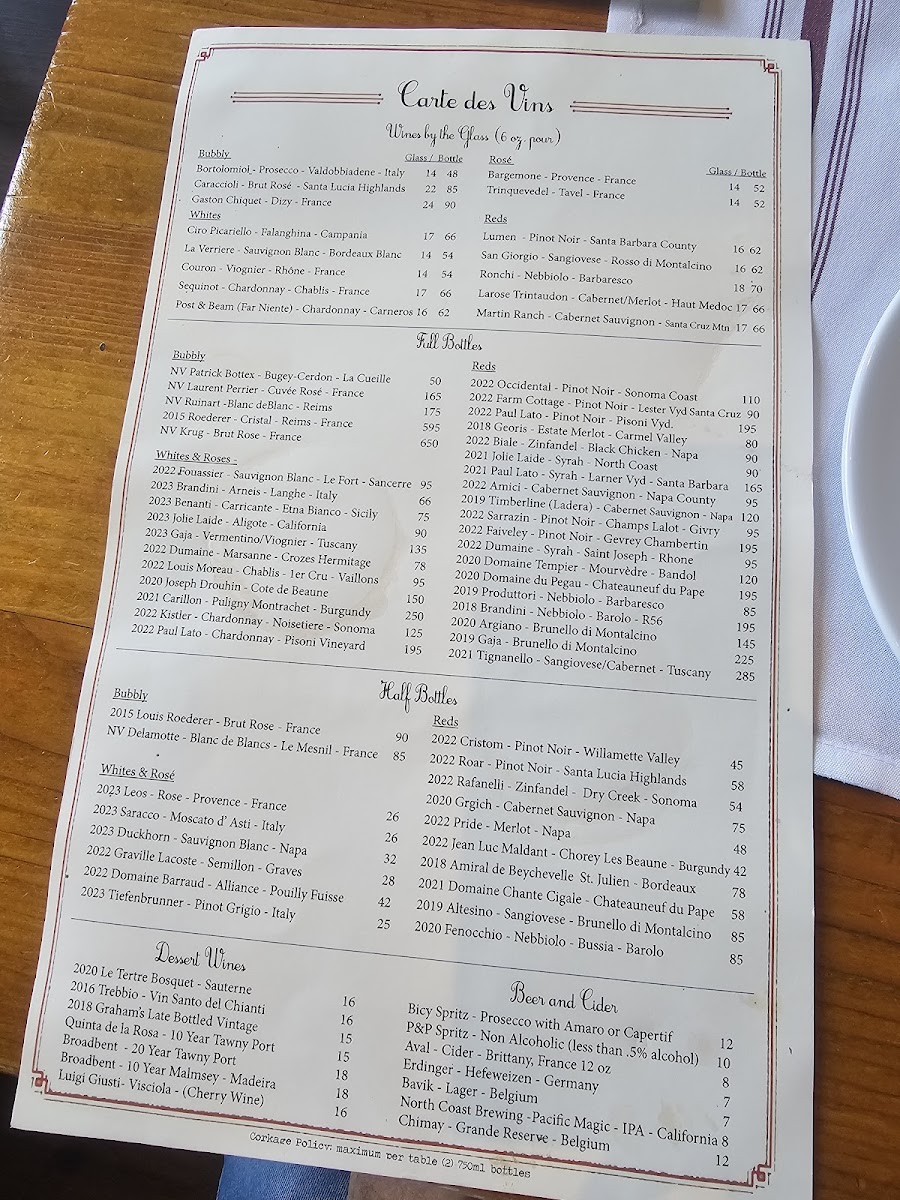 Carte des Vins
Wines by the Glass (6 oz. pour)
Bubbly Glass / Bottle
Bortolomiol - Prosecco - Valdobbiadene - Italy 14 48
Caraccioli - Brut Rosé - Santa Lucia Highlands 22 85
Gaston Chiquet - Dizy - France 24 90
Whites
Ciro Picariello - Falanghina - Campania 17 66
La Verriere - Sauvignon Blanc - Bordeaux Blanc 14 54
Couron - Viognier - Rhône - France 14 54
Sequinot - Chardonnay - Chablis - France 17 66
Post & Beam (Far Niente) - Chardonnay - Carneros 16 62
Rosé Glass / Bottle
Bargemone - Provence - France 14 52
Trinquevedel - Tavel - France 14 52
Reds
Lumen - Pinot Noir - Santa Barbara County 16 62
San Giorgio - Sangiovese - Rosso di Montalcino 16 62
Ronchi - Nebbiolo - Barbaresco 18 70
Larose Trintaudon - Cabernet/Merlot - Haut Medoc 17 66
Martin Ranch - Cabernet Sauvignon - Santa Cruz Mtn 17 66
Full Bottles
Bubbly
NV Patrick Bottex - Bugey-Cerdon - La Cueille 50
NV Laurent Perrier - Cuvée Rosé - France 165
NV Ruinart -Blanc deBlanc - Reims 175
2015 Roederer - Cristal - Reims - France 595
NV Krug - Brut Rose - France 650
Whites & Roses -
2022 Fouassier - Sauvignon Blanc - Le Fort - Sancerre 95
2023 Brandini - Arneis - Langhe - Italy 66
2023 Benanti - Carricante - Etna Bianco - Sicily 75
2023 Jolie Laide - Aligote - California 90
2023 Gaja - Vermentino/Viognier - Tuscany 135
2022 Dumaine - Marsanne - Crozes Hermitage 78
2022 Louis Moreau - Chablis - 1er Cru - Vaillons 95
2020 Joseph Drouhin - Cote de Beaune 150
2021 Carillon - Puligny Montrachet - Burgundy 250
2022 Kistler - Chardonnay - Noisetiere - Sonoma 125
2022 Paul Lato - Chardonnay - Pisoni Vineyard 195
Reds
2022 Occidental - Pinot Noir - Sonoma Coast 110
2022 Farm Cottage - Pinot Noir - Lester Vyd Santa Cruz 90
2022 Paul Lato - Pinot Noir - Pisoni Vyd. 195
2018 Georis - Estate Merlot - Carmel Valley 80
2022 Biale - Zinfandel - Black Chicken - Napa 90
2021 Jolie Laide - Syrah - North Coast 90
2021 Paul Lato - Syrah - Larner Vyd - Santa Barbara 165
2022 Amici - Cabernet Sauvignon - Napa County 95
2019 Timberline (Ladera) - Cabernet Sauvignon - Napa 120
2022 Sarrazin - Pinot Noir - Champs Lalot - Givry 95
2022 Faiveley - Pinot Noir - Gevrey Chambertin 195
2022 Dumaine - Syrah - Saint Joseph - Rhone 95
2020 Domaine Tempier - Mourvèdre - Bandol 120
2020 Domaine du Pegau - Chateauneuf du Pape 195
2019 Produttori - Nebbiolo - Barbaresco 85
2018 Brandini - Nebbiolo - Barolo - R56 195
2020 Argiano - Brunello di Montalcino 145
2019 Gaja - Brunello di Montalcino 225
2021 Tignanello - Sangiovese/Cabernet - Tuscany 285
Half Bottles
Bubbly
2015 Louis Roederer - Brut Rose - France 90
NV Delamotte - Blanc de Blancs - Le Mesnil - France 85
Whites & Rosé
2023 Leos - Rose - Provence - France 26
2023 Saracco - Moscato d' Asti - Italy 26
2023 Duckhorn - Sauvignon Blanc - Napa 32
2022 Graville Lacoste - Semillon - Graves 28
2022 Domaine Barraud - Alliance - Pouilly Fuisse 42
2023 Tiefenbrunner - Pinot Grigio - Italy 25
Reds
2022 Cristom - Pinot Noir - Willamette Valley 45
2022 Roar - Pinot Noir - Santa Lucia Highlands 58
2022 Rafanelli - Zinfandel - Dry Creek - Sonoma 54
2020 Grgich - Cabernet Sauvignon - Napa 75
2022 Pride - Merlot - Napa 48
2022 Jean Luc Maldant - Chorey Les Beaune - Burgundy 42
2018 Amiral de Beychevelle St. Julien - Bordeaux 78
2021 Domaine Chante Cigale - Chateauneuf du Pape 58
2019 Altesino - Sangiovese - Brunello di Montalcino 85
2020 Fenocchio - Nebbiolo - Bussia - Barolo 85
Dessert Wines
2020 Le Tertre Bosquet - Sauterne 16
2016 Trebbio - Vin Santo del Chianti 16
2018 Graham's Late Bottled Vintage 15
Quinta de la Rosa - 10 Year Tawny Port 15
Broadbent - 20 Year Tawny Port 18
Broadbent - 10 Year Malmsey - Madeira 18
Luigi Giusti- Visciola - (Cherry Wine) 16
Beer and Cider
Bicy Spritz - Prosecco with Amaro or Capertif 12
P&P Spritz - Non Alcoholic (less than .5% alcohol) 10
Aval - Cider - Brittany, France 12 oz 8
Erdinger - Hefeweizen - Germany 7
Bavik - Lager - Belgium 7
North Coast Brewing -Pacific Magic - IPA - California 8
Chimay - Grande Reserve - Belgium 12
Corkage Policy: maximum per table (2) 750ml bottles